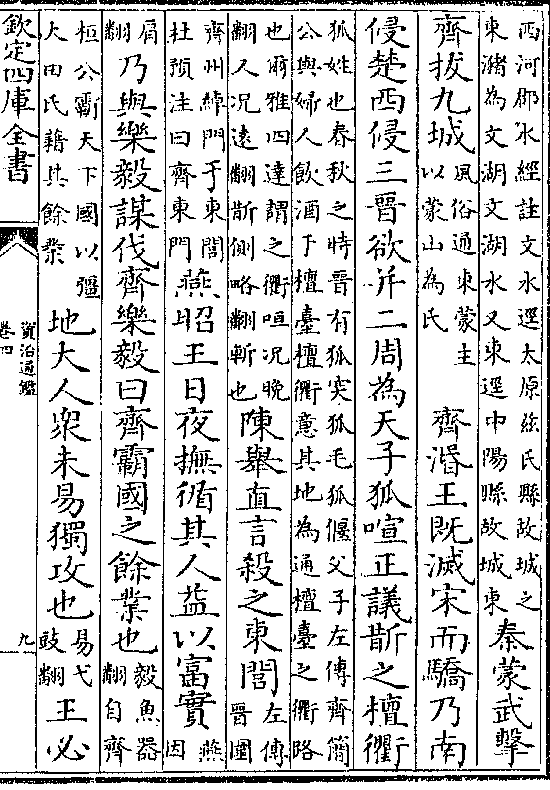 西河郡水經註文水逕太原兹氏縣故城之
東瀦為文湖文湖水又東逕中陽縣故城東
秦蒙武擊
齊拔九城
風俗通東蒙主
以蒙山為氏
齊湣王既滅宋而驕乃南
侵楚西侵三晉欲并二周為天子狐喧正議斮之檀衢
狐姓也春秋之時晉有狐突狐毛狐偃父子左傳齊簡
公與婦人飲酒于檀臺檀衢意其地為通檀臺之衢路
也爾雅四達謂之衢咺况晚
翻人况逺翻斮側略翻斬也
陳舉直言殺之東閭
左傳
晉圍
齊州綽門于東閭
杜預注曰齊東門
燕昭王日夜撫循其人益以富實
燕
因
肩
翻
乃與樂毅謀伐齊樂毅曰齊霸國之餘業也
毅魚器
翻自齊
桓公霸天下國以彊
大田氏藉其餘業
地大人衆未易獨攻也
易弋
豉翻
王必
欽定四庫全書
資治通鑑
卷四
九